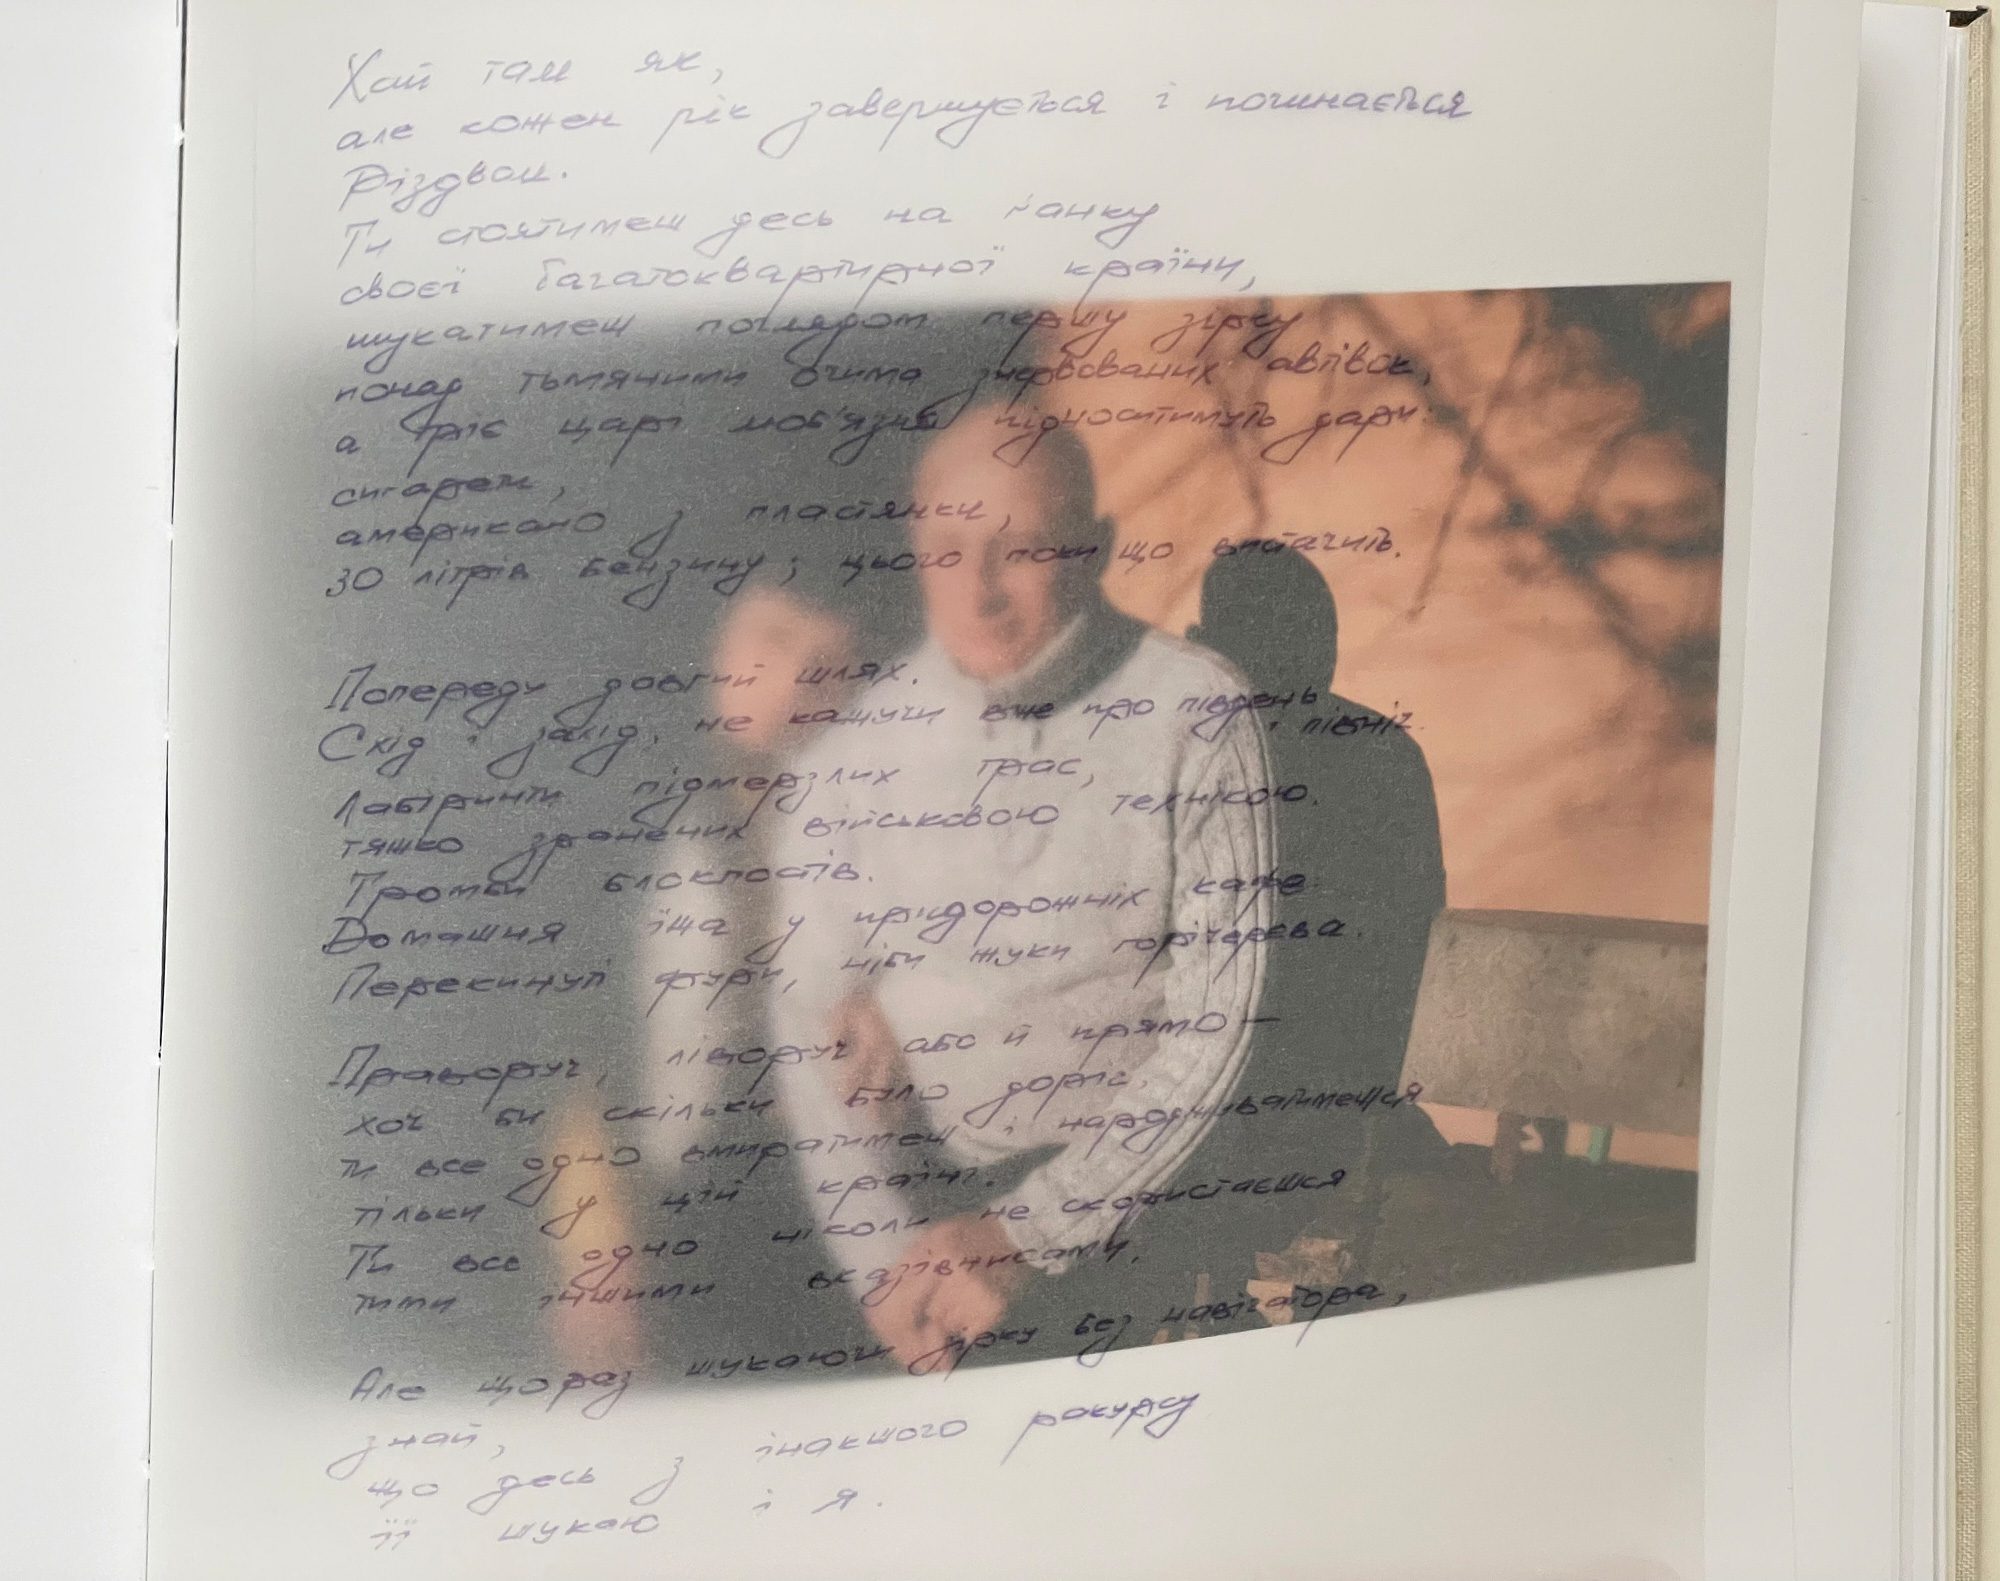 Хай там як,
але кожен рік завершується і починається
Різдвом.
Ти стоятимеш десь на ґанку
своєї багатоквартирної країни,
шукатимеш поглядом першу зірку
понад тьмяними очима знервованих автівок,
а троє царі моб'язня підноситимуть дари:
сигарети,
американо з пластянки,
30 літрів бензину; цього поки що вистачить.
Попереду довгий шлях.
Схід і захід, не кажучи вже про південь і північ.
Лабіринти підмерзлих трас,
тяжко зранених військовою технікою.
Тромби блокпостів.
Домашня їжа у придорожніх кафе.
Перекинуті фури, ніби жуки горічерева.
Праворуч, ліворуч або й прямо —
хоч би скільки було доріг,
ти все одно вмиратимеш і народжуватимешся
тільки у цій країні.
Ти все одно ніколи не скористаєшся
тими іншими вказівниками.
Але щораз шукаючи зірку без навігатора,
знай,
що десь з інакшого ракурсу
її шукаю і я.